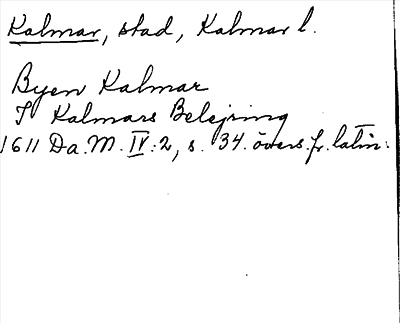 Kalmar, stad, Kalmar l.
Byen Kalmar
I Kalmars Belejring
1611 Da. M. IV:2, s. 34. övers. fr. latin.